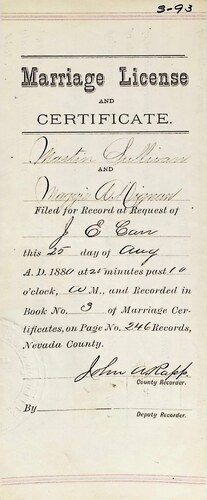 3-93
Marriage License
AND
CERTIFICATE.
Martin Sullivan
AND
Maggie
Filed for Record at Request of
J E Carr
this 25 day of Aug
A. D. 1880 at 25 minutes past 10
o'clock, A M., and Recorded in
Book No. 3 of Marriage Cer-
tificates, on Page No. 246 Records,
Nevada County.
John A Rapp.
County Recorder.
By
Deputy Recorder.